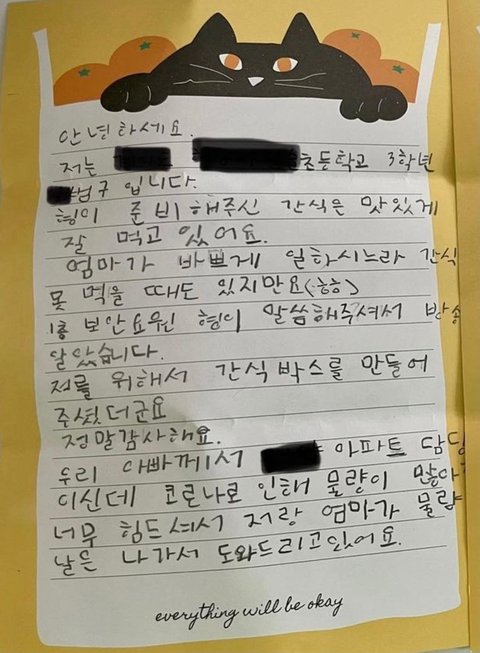 안녕하세요.
저는 초등학교 3학년
범구 입니다.
형이 준비해주신 간식은 맛있게
잘 먹고 있어요.
엄마가 바쁘게 일하시느라 간식
못 먹을 때도 있지만요(ㅎㅎ)
1층 보안요원 형이 말씀해주셔서 방송
알았습니다.
저를 위해서 간식박스를 만들어
주셨더군요
정말감사해요.
우리 아빠께서 아파트 담당
이신데 코로나로 인해 물량이 많아
너무 힘드셔서 저랑 엄마가 물량
날은 나가서 도와드리고있어요.
everything will be okay